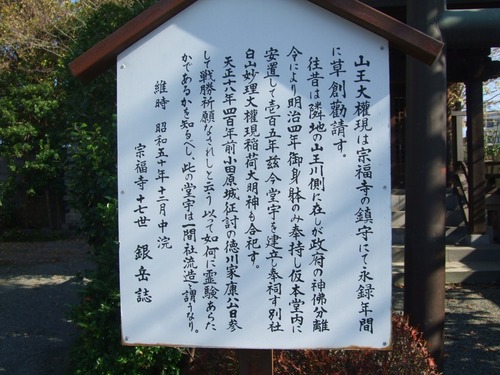 山王大權現は宗福寺の鎮守にて永録年間
に草創勸請す。
往昔は隣地の山王川側に在しが政府の神佛分離
令により明治四年御身躰のみ奉持し仮本堂内に
安置して壱百五年茲今堂宇を建立し奉祠す別社
白山妙理大權現稲荷大明神も合祀す。
天正十八年四百年前小田原城征討の徳川家康公日参
して戦勝祈願なされしと云う以って如何に霊験あらた
かであるかを知るべし、此の堂宇は一間社流造と謂うなり。
維時 昭和五十年十二月中浣
宗福寺十七世 銀岳誌